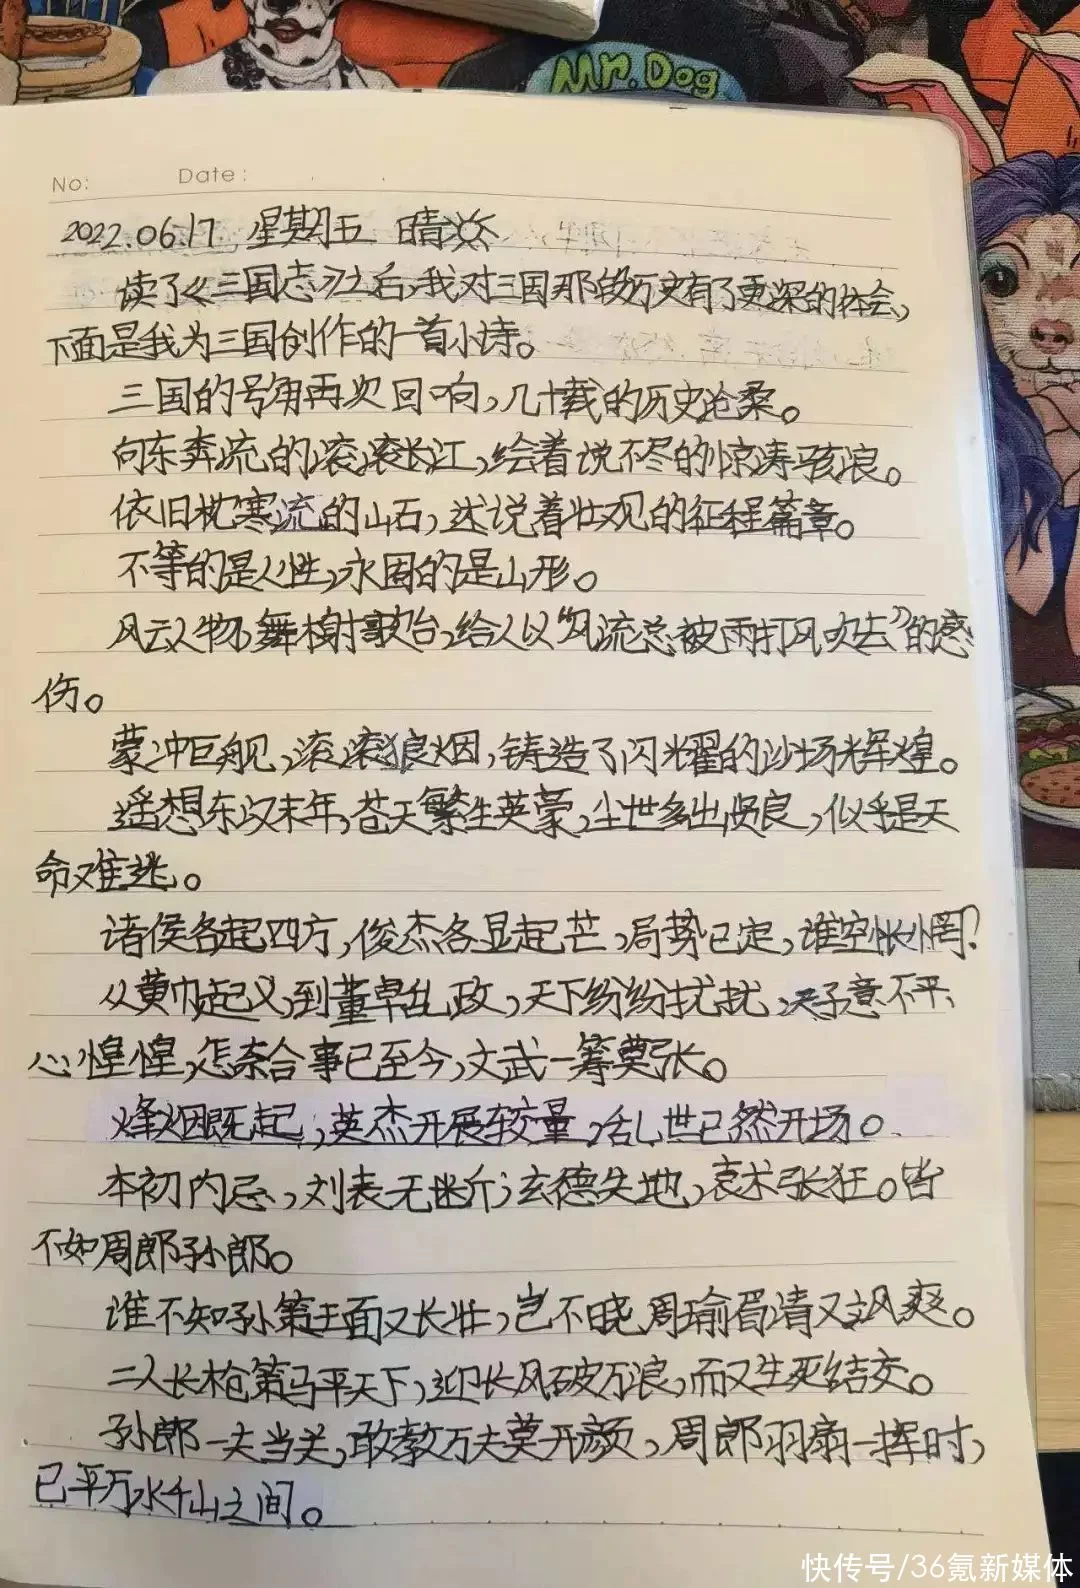 Mr. Dog
No:
Date:
2022.06.17 星期五 晴
读了《三国志》之后,我对三国那段历史有了更深的体会,
下面是我为三国创作的一首小诗。
三国的号角再次回响,几十载的历史沧桑。
向东奔流的滚滚长江,绘着说不尽的惊涛骇浪。
依旧枕寒流的山石,述说着壮观的征程篇章。
不等的是人性,永固的是山形。
风云人物,舞榭歌台,给人以“风流总被雨打风吹去”的感
伤。
蒙冲巨舰,滚滚狼烟,铸造了闪耀的沙场辉煌。
遥想东汉末年,苍天繁生英蒙,尘世多出贤良,似乎是天
命难逃。
诸侯各起四方,俊杰各显起芒,局势已定,谁空怅惘?
从黄巾起义,到董卓乱政,天下纷纷扰扰,天子意不平、
心惶惶,怎奈合事已至今,文武一筹莫张。
烽烟既起,英杰开展较量,乱世已然开场。
本初内忌,刘表无断,玄德失地,袁术张狂。皆
不如周郎孙郎。
谁不知孙策王面又长壮,岂不晓周瑜眉清又飒爽。
二人长枪策马平天下,迎长风破万浪,而又生死结交。
孙郎一夫当关,敢教万夫莫开颜,周郎羽扇一挥时,
已平万水千山之间。
快传号/36氪新媒体